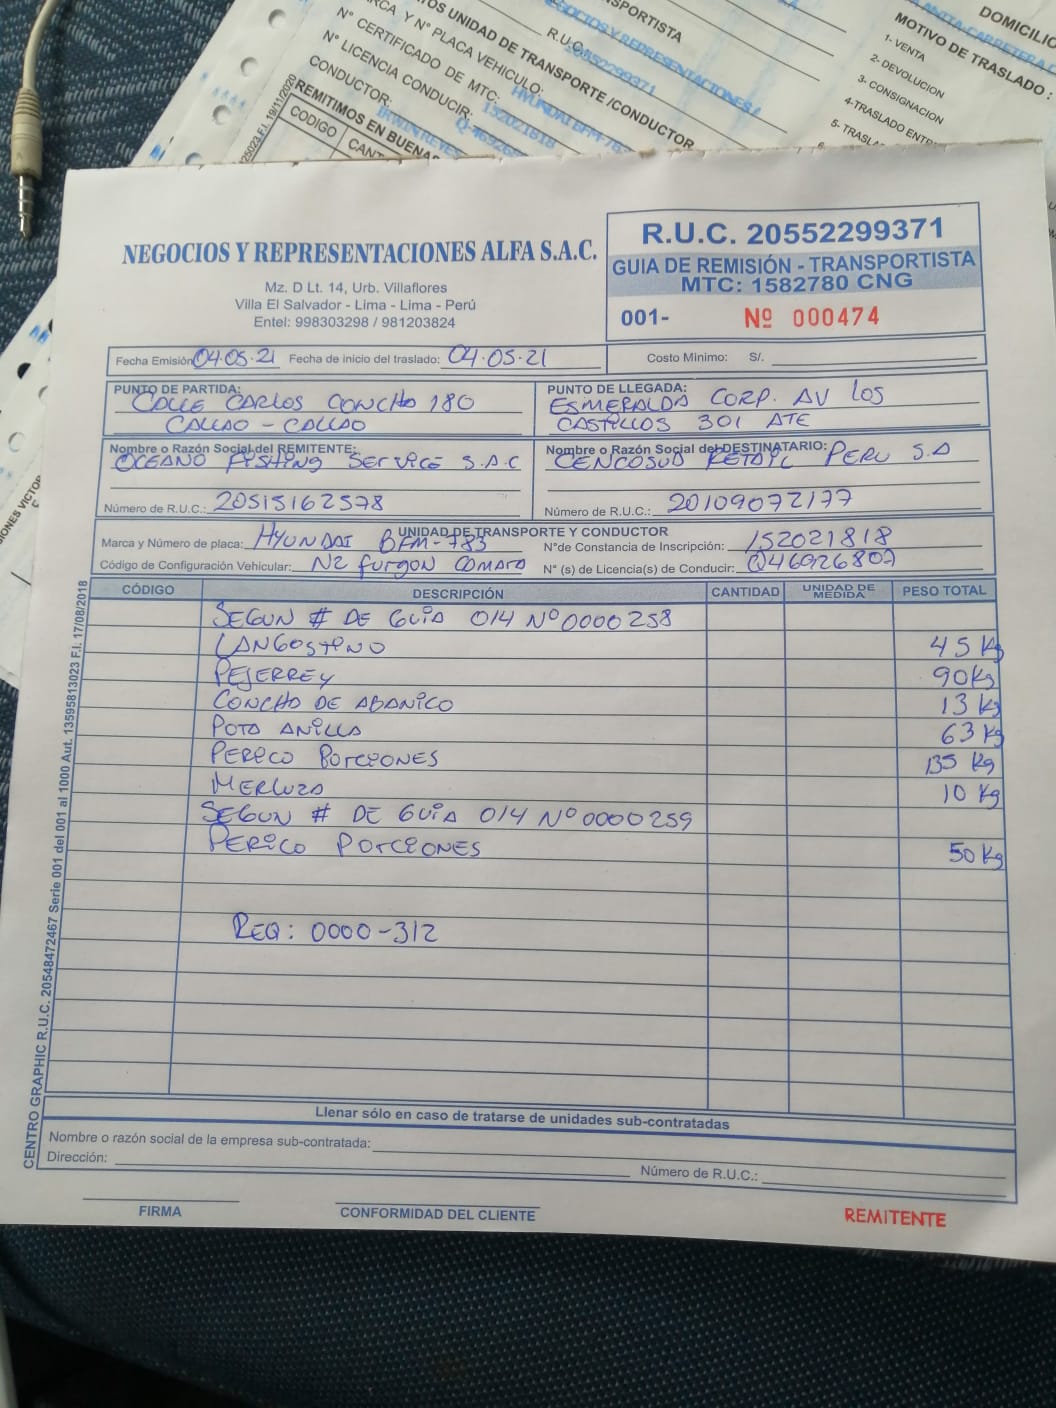 RCA Y Nº PLACA VEHICULO:
OS UNIDAD DE TRANSPORTE /CONDUCTOR
Nº CERTIFICADO DE MTC:
Nº LICENCIA CONDUCIR:
CONDUCTOR:
REMITIMOS EN BUENA
CODIGO
CANT
R.U.C.
SPORTISTA
DOMICILIO
MOTIVO DE TRASLADO :
1- VENTA
2- DEVOLUCION
3- CONSIGNACION
4-TRASLADO ENTR
5- TRASLA
NEGOCIOS Y REPRESENTACIONES ALFA S.A.C.
Mz. D Lt. 14, Urb. Villaflores
Villa El Salvador - Lima - Lima - Perú
Entel: 998303298 / 981203824
R.U.C. 20552299371
GUIA DE REMISIÓN - TRANSPORTISTA
MTC: 1582780 CNG
001- Nº 000474
Fecha Emisión 04.05.21 Fecha de inicio del traslado: 04.05.21 Costo Minimo: S/.
PUNTO DE PARTIDA:
CALLE CARLOS CONCHO 180
CALLAO - CALLAO
PUNTO DE LLEGADA:
ESMERALDA CORP. AV LOS
CASTILLOS 301 ATE
Nombre o Razón Social del REMITENTE:
OCEANO FISHING SERVICE S.A.C
Número de R.U.C.: 20515162578
Nombre o Razón Social del DESTINATARIO:
CENCOSUD RETAIL PERU S.A
Número de R.U.C.: 20109072177
UNIDAD DE TRANSPORTE Y CONDUCTOR
Marca y Número de placa: HYUNDAI BFM-783 N°de Constancia de Inscripción: 152021818
Código de Configuración Vehicular: N2 furgon COMARA N° (s) de Licencia(s) de Conducir: Q46926807
CÓDIGO DESCRIPCIÓN CANTIDAD UNIDAD DE MEDIDA PESO TOTAL
SEGUN # DE GUIA 014 Nº 0000258
LANGOSTINO 45 Kg
PEJERREY 90Kg
CONCHO DE ABANICO 13 Kg
POTA ANILLA 63 Kg
PERICO PORCIONES 135 Kg
MERLUZA 10 Kg
SEGUN # DE GUIA 014 Nº 0000259
PERICO PORCIONES 50 Kg
REQ: 0000-312
Llenar sólo en caso de tratarse de unidades sub-contratadas
Nombre o razón social de la empresa sub-contratada:
Dirección: Número de R.U.C.:
FIRMA CONFORMIDAD DEL CLIENTE REMITENTE
CENTRO GRAPHIC R.U.C. 20548472467 Serie 001 del 001 al 1000 Aut. 13595813023 F.I. 17/08/2018